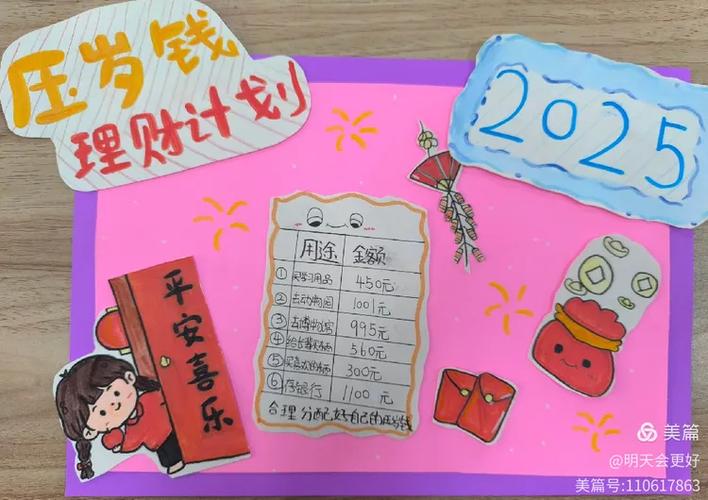 压岁钱
理财计划
2025
用途 金额
① 买学习用品 450元
② 去动物园 1001元
③ 去博物馆 995元
④ 560元
⑤ 买喜欢的东西 300元
⑥ 存银行 1100元
合理分配好自己的压岁钱
平安喜乐
美篇
@明天会更好
美篇号:110617863